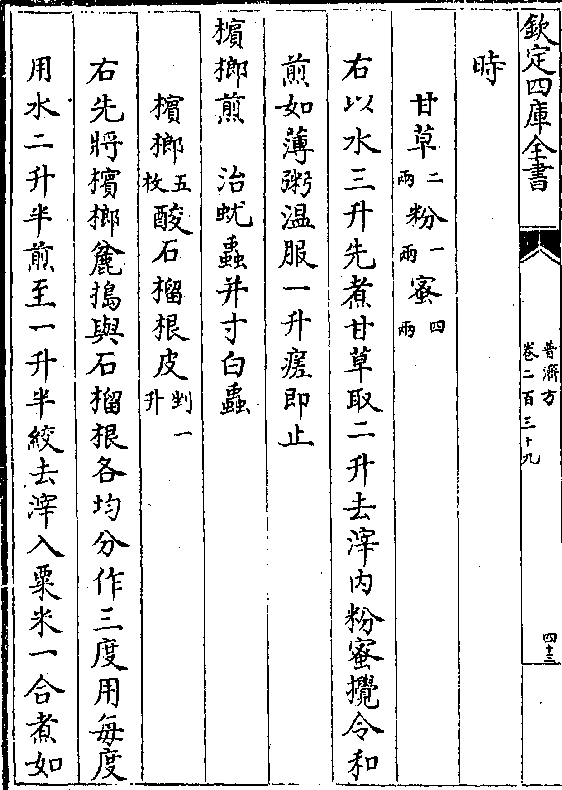 欽定四庫全書
普濟方
卷二百三十九
四十三
時
甘草二兩粉一兩蜜四兩
右以水三升先煮甘草取二升去滓内粉蜜攪令和
煎如薄粥温服一升瘥即止
檳榔煎　治蚘蟲并寸白蟲
檳榔五枚酸石榴根皮剉一升
右先將檳榔麄搗與石榴根各均分作三度用每度
用水二升半煎至一升半絞去滓入粟米一合煮如